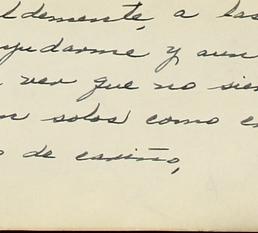 ldemente, a las
yudarme y aun
ver que no sien
n solos como e
o de cariño,